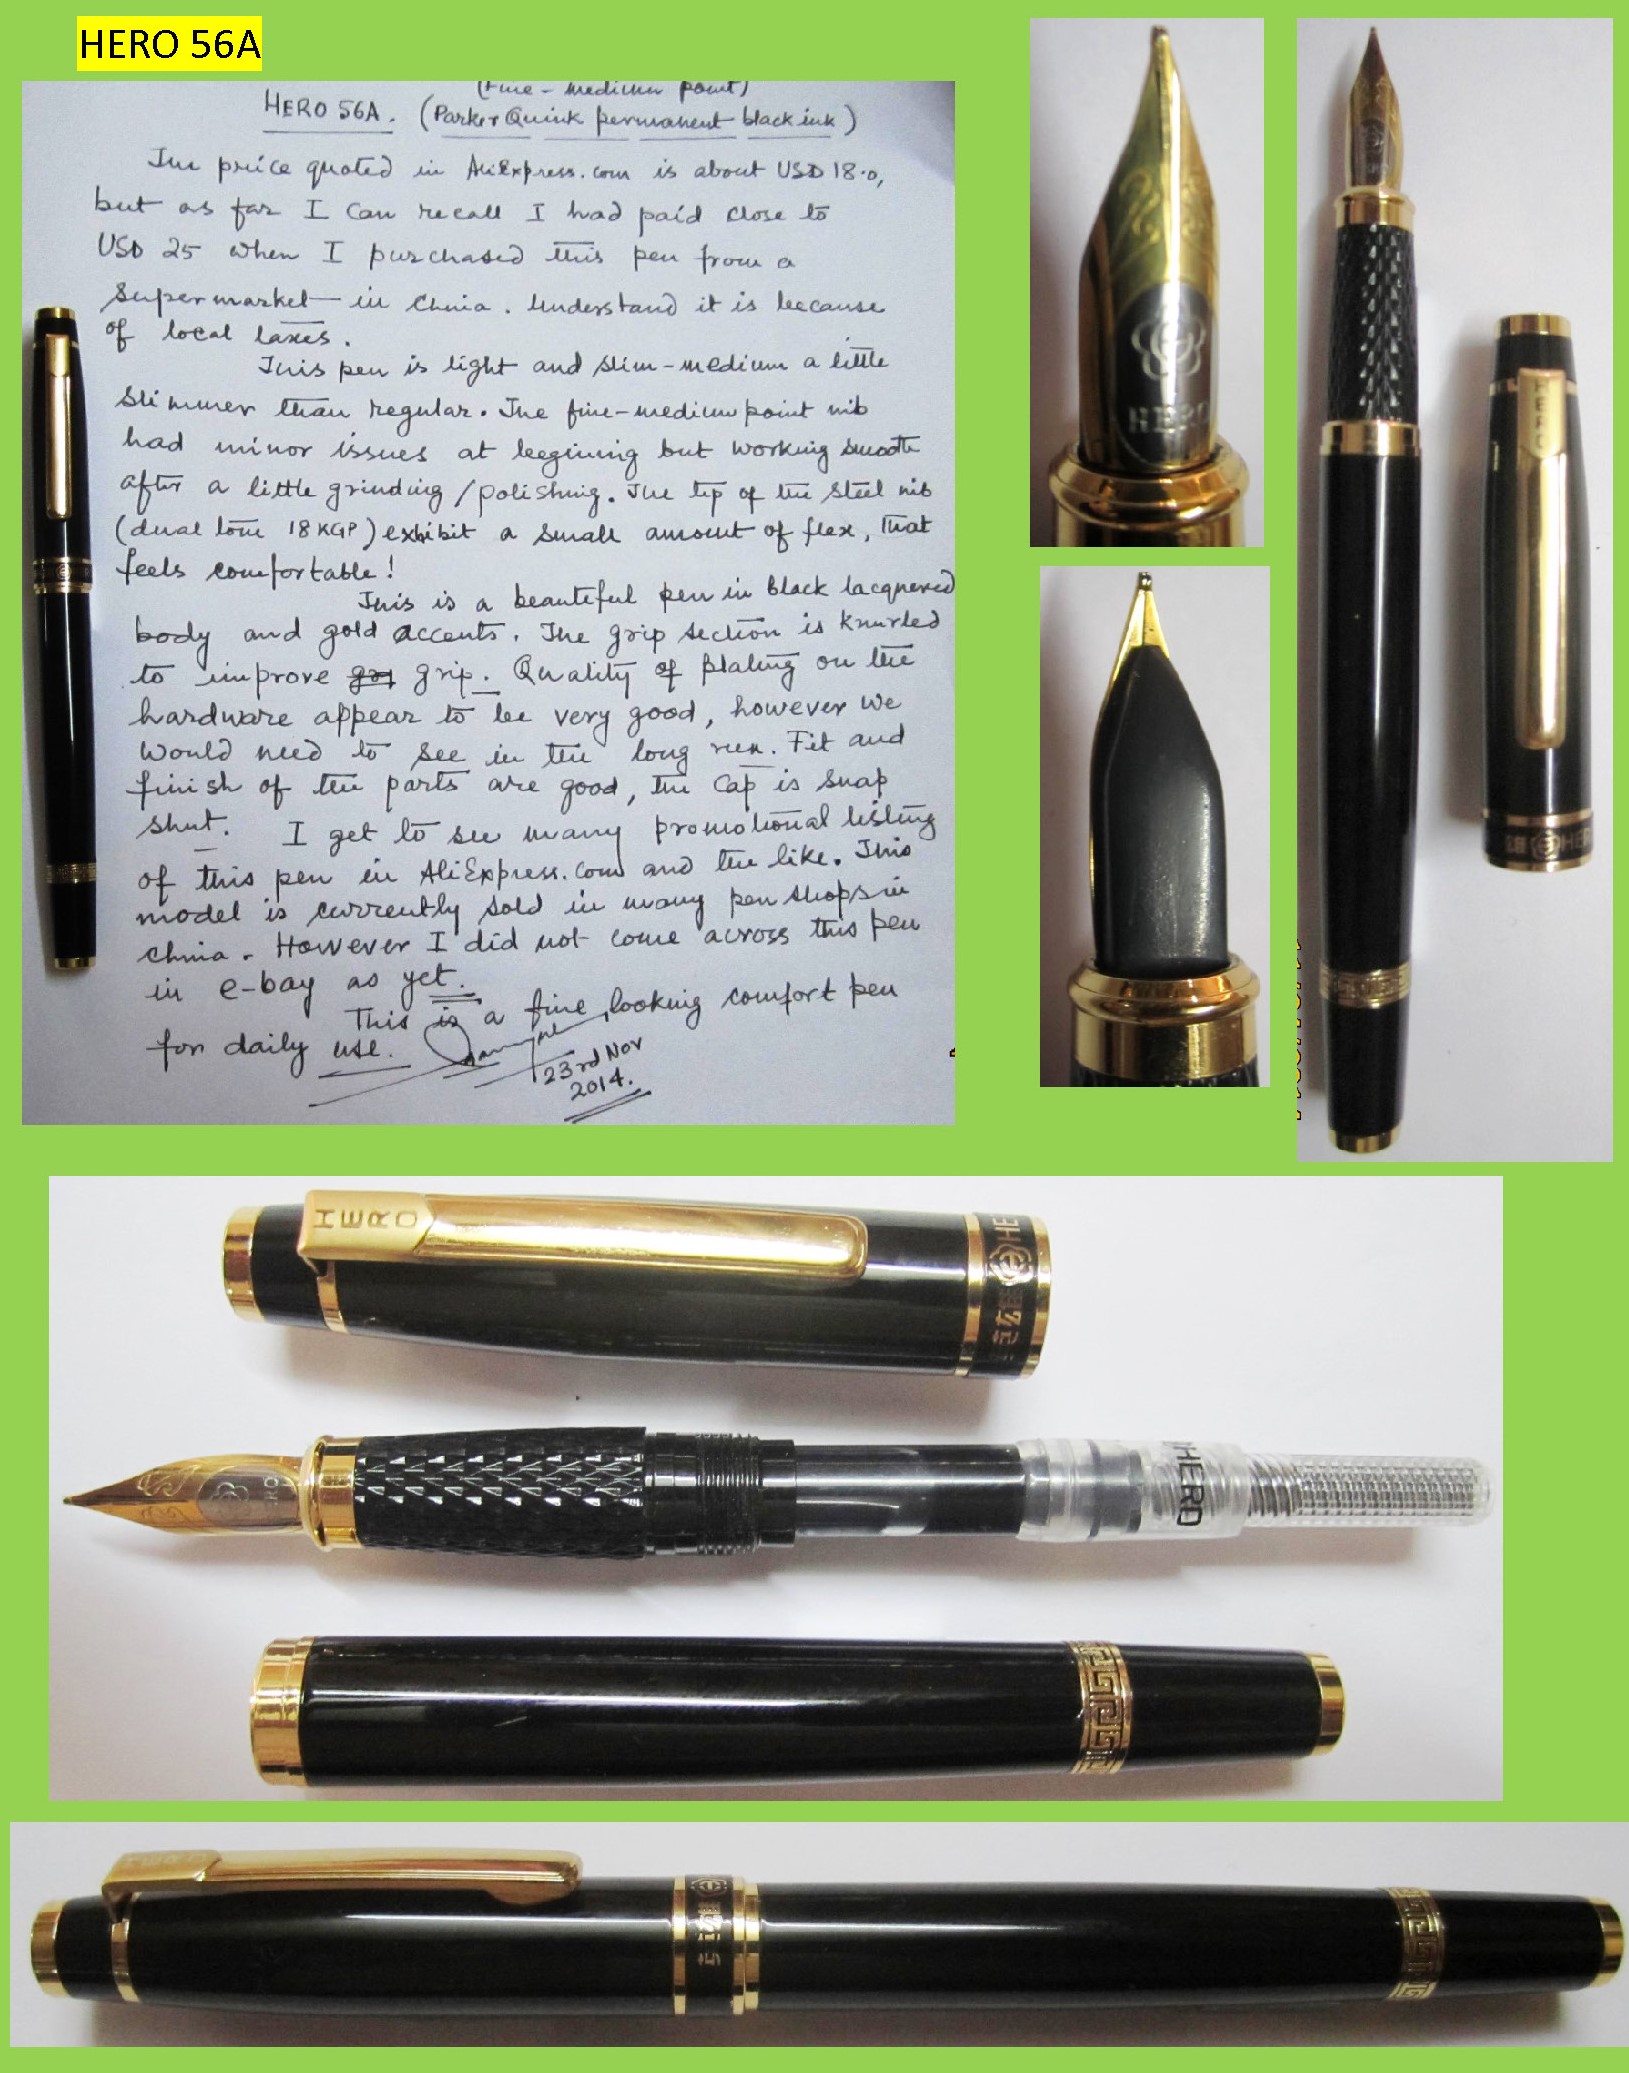 HERO 56A
(Fine - medium point)
HERO 56A. (Parker Quink permanent black ink)
The price quoted in AliExpress.com is about USD 18.0,
but as far I can recall I had paid close to
USD 25 when I purchased this pen from a
Supermarket in China. Understand it is because
of local taxes.
This pen is light and slim-medium a little
slimmer than regular. The fine-medium point nib
had minor issues at begining but working smooth
after a little grinding/polishing. The tip of the steel nib
(dual tone 18KGP) exhibit a small amount of flex, that
feels comfortable!
This is a beautiful pen in black lacquered
body and gold accents. The grip section is knurled
to improve grip. Quality of plating on the
hardware appear to be very good, however we
would need to see in the long run. Fit and
finish of the parts are good, the cap is snap
shut. I get to see many promotional listing
of this pen in AliExpress.com and the like. This
model is currently sold in many pen shops in
China. However I did not come across this pen
in e-bay as yet.
This is a fine looking comfort pen
for daily use.
23rd Nov
2014.
HERO
HERO
HERO
HERO
HERO
HERO
HERO